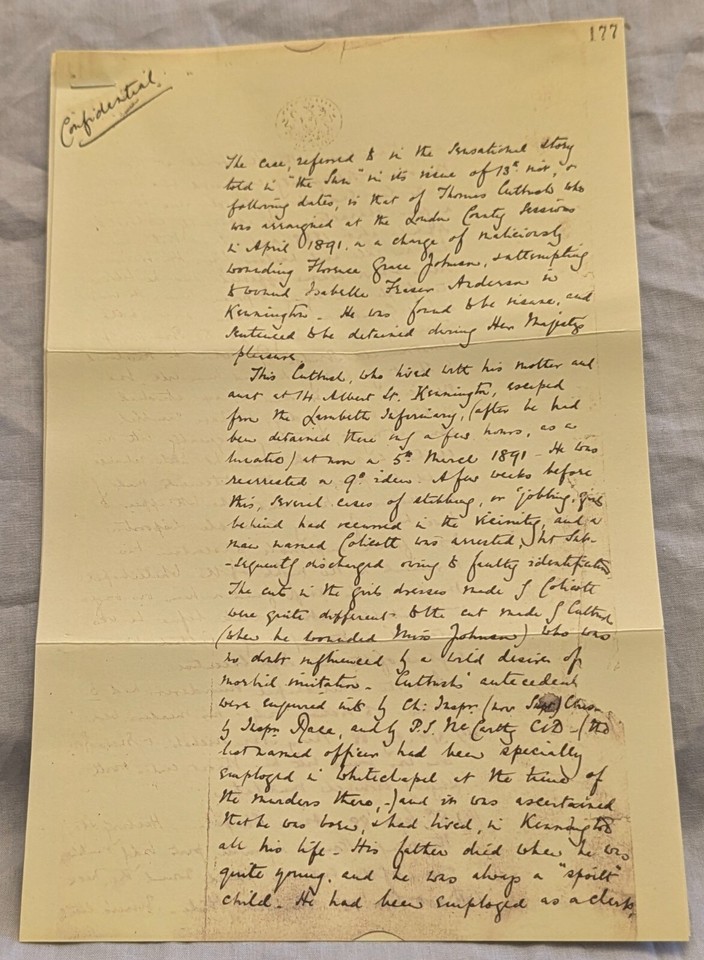 177
Confidential
The case, referred to in the sensational story
told in "the Sun" in its issue of 13th inst, &
following dates, is that of Thomas Cutbush who
was arraigned at the London County Sessions
in April 1891. on a charge of maliciously
wounding Florence Grace Johnson, & attempting
to wound Isabelle Fraser Anderson in
Kennington - He was found to be insane, and
sentenced to be detained during Her Majesty's
pleasure.
This Cutbush, who lived with his mother and
aunt at 14 Albert St. Kennington, escaped
from the Lambeth Infirmary, (after he had
been detained there only a few hours, as a
lunatic) at noon on 5th March 1891 - He was
rearrested on 9th idem. A few weeks before
this, several cases of stabbing, or "jobbing, girls
behind had occurred in the vicinity, and a
man named Colicott was arrested, but sub-
-sequently discharged owing to faulty identification
The cuts in the girls dresses made by Colicott
were quite different to the cut made by Cutbush
(when he wounded Miss Johnson) who was
no doubt influenced by a wild desire of
morbid imitation - Cutbush's antecedents
were enquired into by Ch: Inspr: (now Supt)
by Inspr. Race, and by P.S. McCarthy CID - (the
last named officer had been specially
employed in Whitechapel at the time of
the murders there, -) and it was ascertained
that he was born, & had lived, in Kennington
all his life - His father died when he was
quite young, and he was always a "spoilt"
child - He had been employed as a clerk,